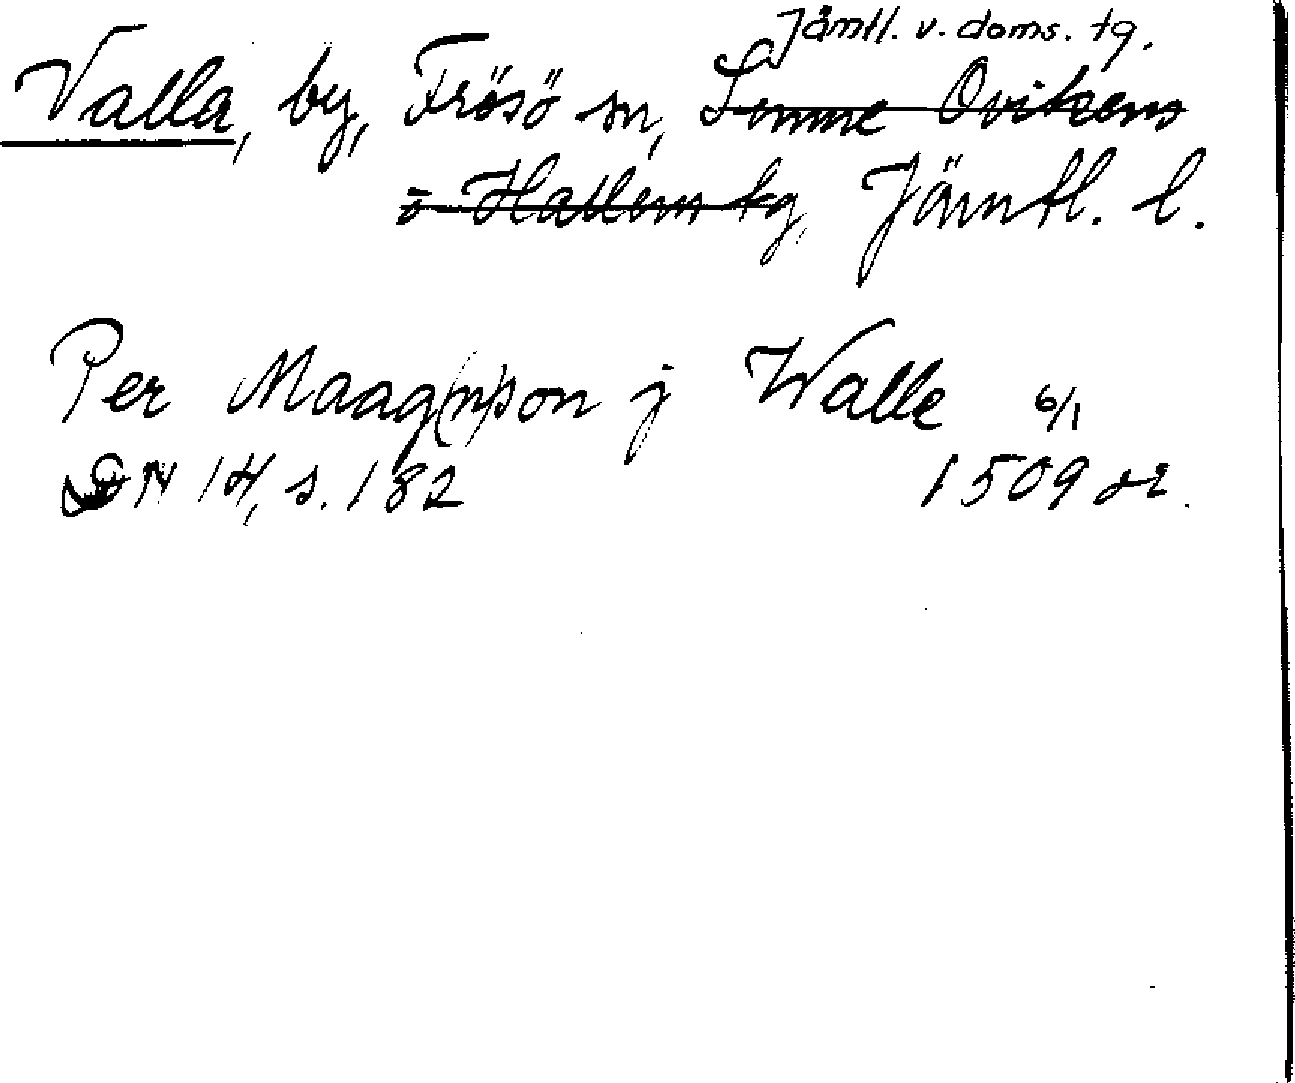 Jämtl. v. doms. tg.
Valla, by, Frösö sn, Sunne Ovikens
o Hallens tg, Jämtl. l.
Per Maag(n)son j Walle 6/1
DN 14, s. 182 1509 or.